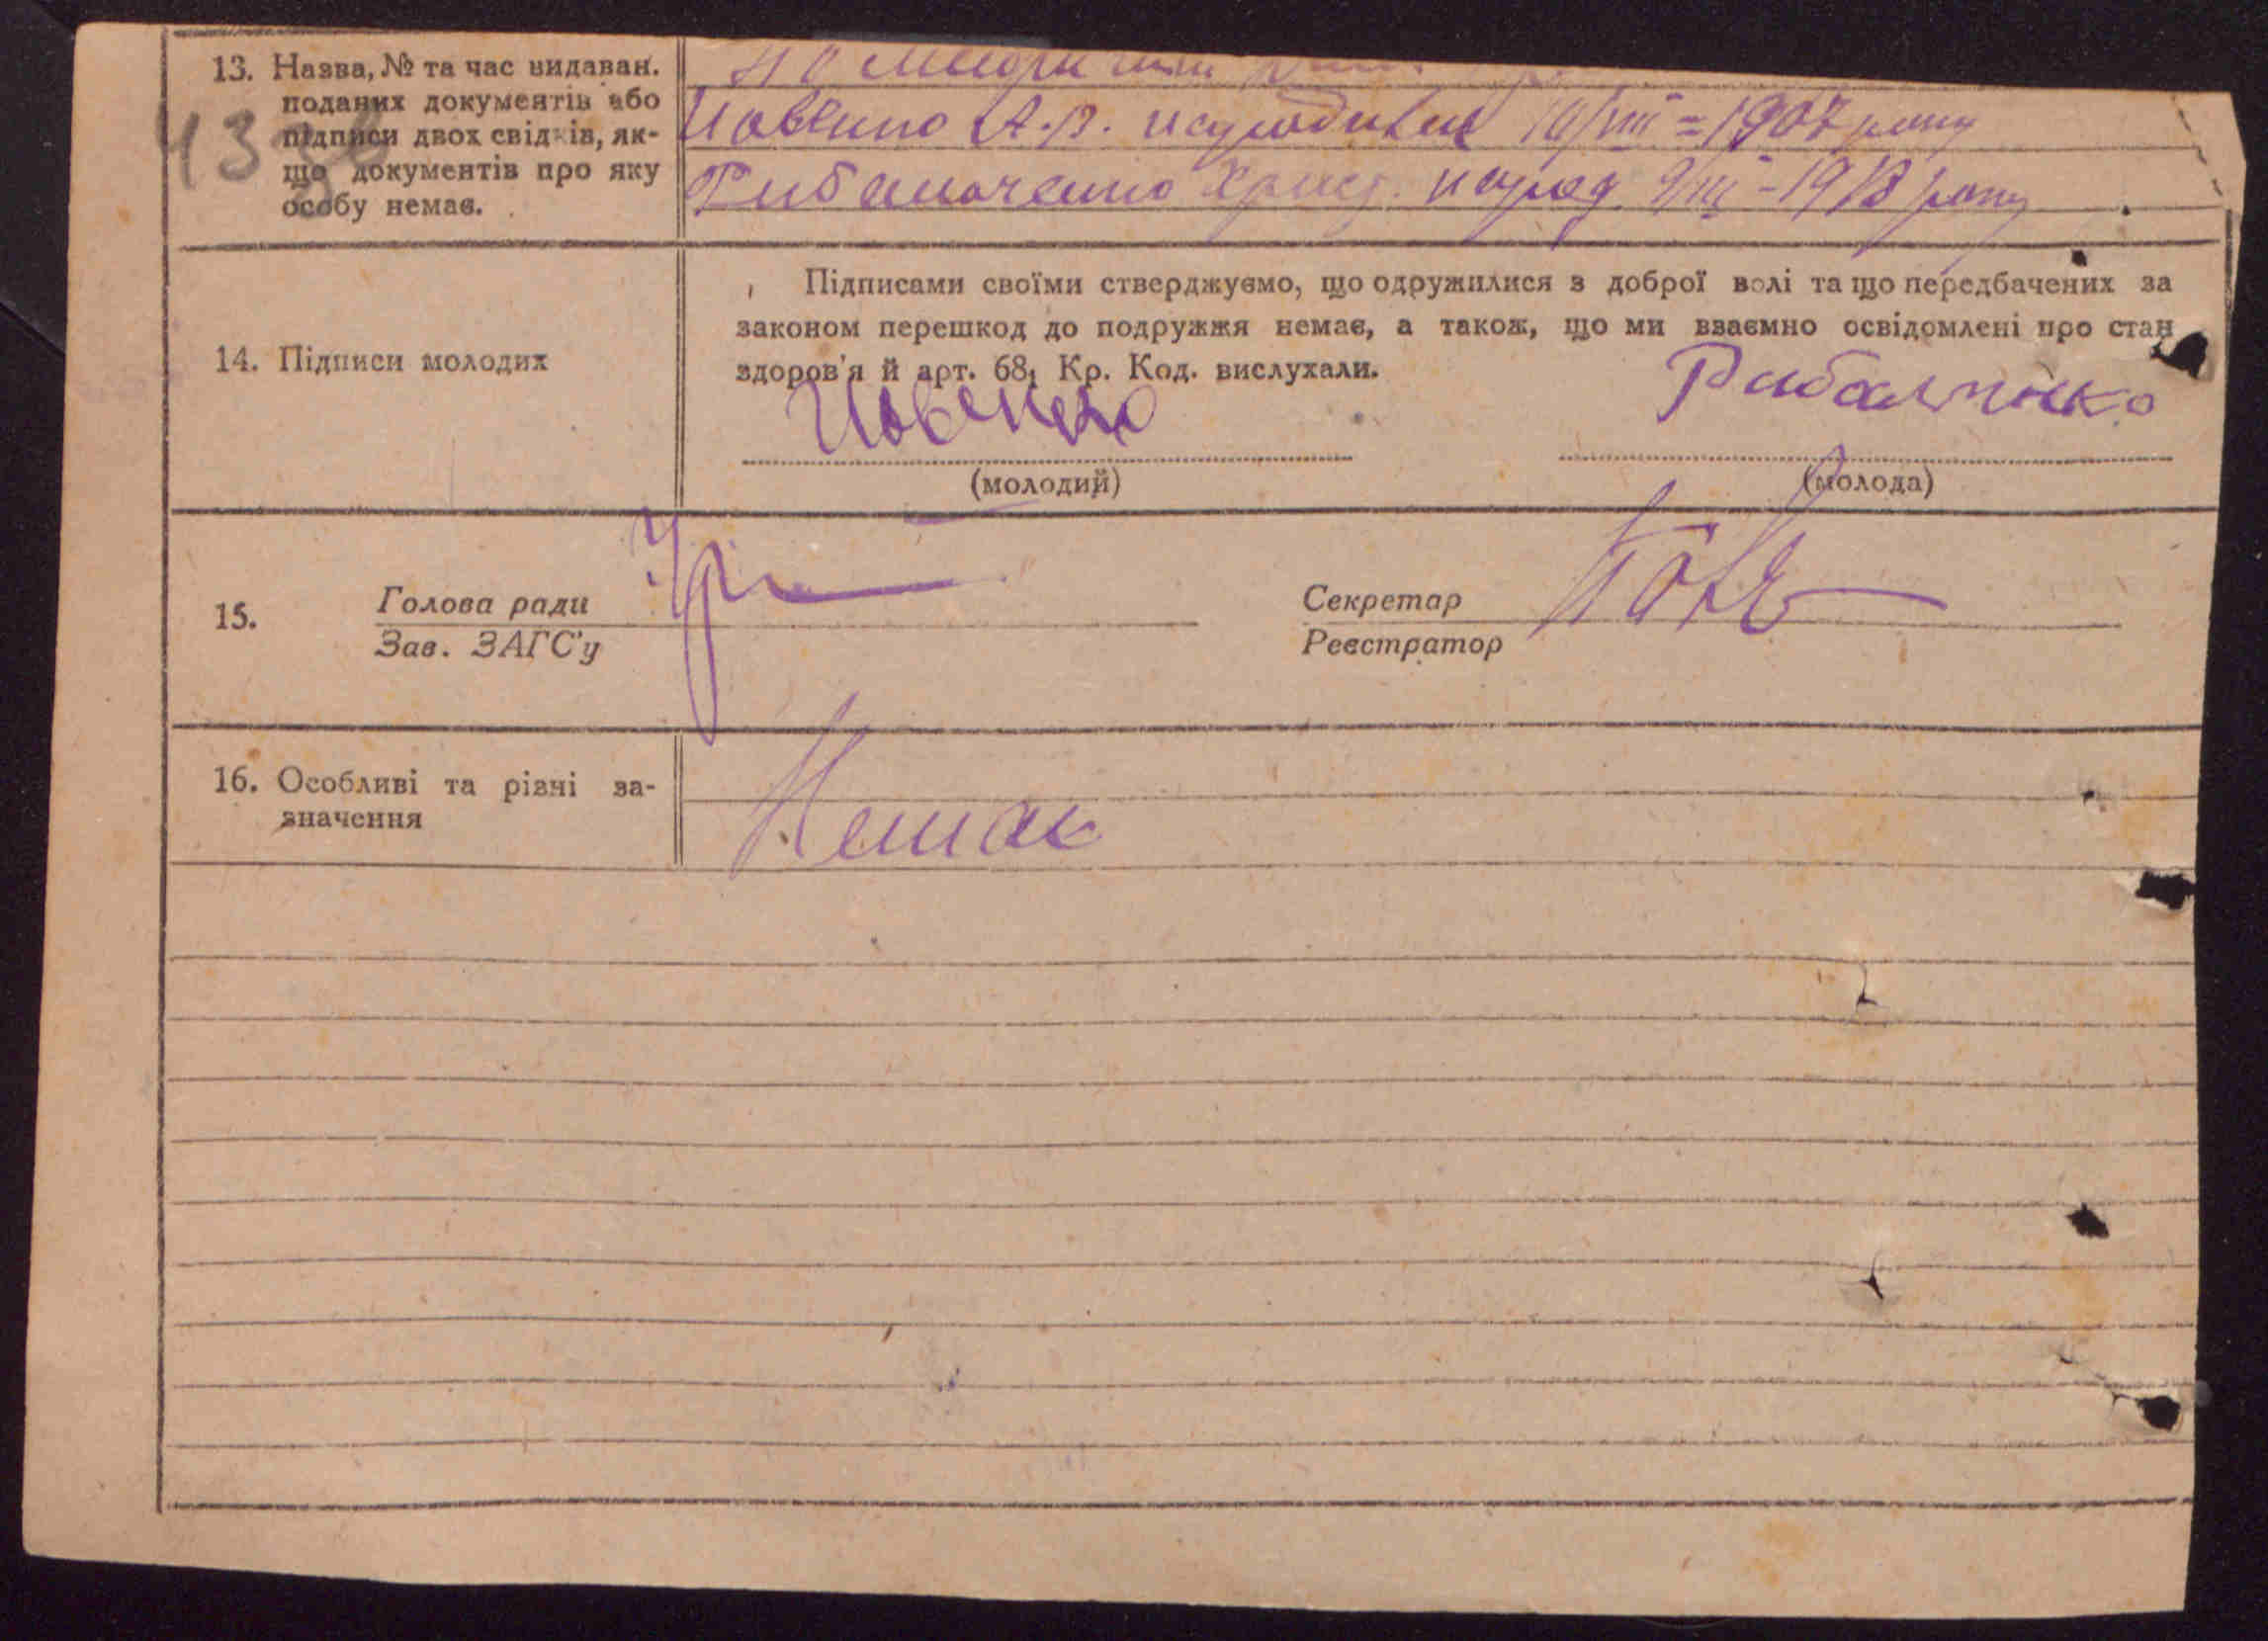 13. Назва, № та час видаван.
поданих документів або
підписи двох свідків, як-
що документів про яку
особу немає.
А.В. 10/VIII = 1907 року
1918 року
14. Підписи молодих
Підписами своїми стверджуємо, що одружилися з доброї волі та що передбачених за
законом перешкод до подружжя немає, а також, що ми взаємно освідомлені про стан
здоров'я й арт. 68₁ Кр. Код. вислухали.
(молодий)
(молода)
15. Голова ради Секретар
Зав. ЗАГС'у Реєстратор
16. Особливі та різні за-
значення
Немає